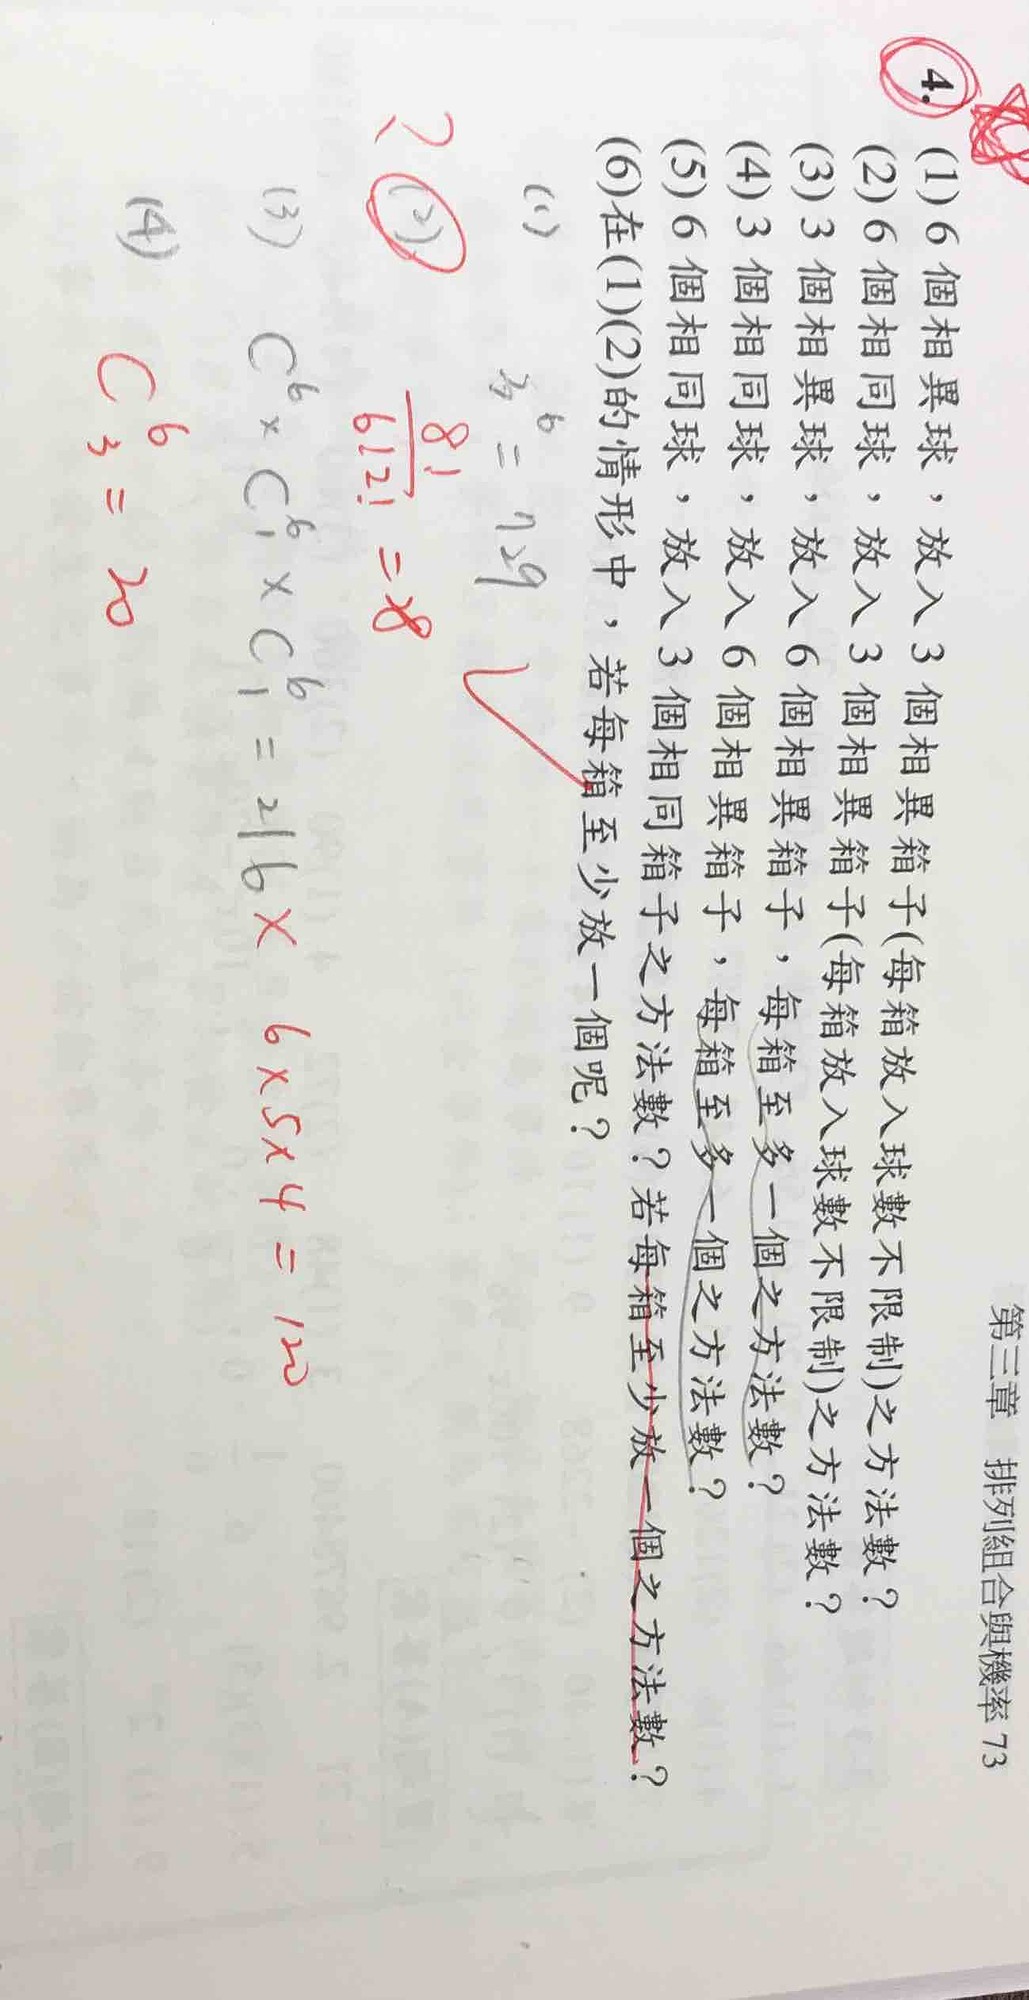 第三章 排列組合與機率 73
4. (1) 6 個相異球，放入 3 個相異箱子(每箱放入球數不限制)之方法數？
(2) 6 個相同球，放入 3 個相異箱子(每箱放入球數不限制)之方法數？
(3) 3 個相異球，放入 6 個相異箱子，每箱至多一個之方法數？
(4) 3 個相同球，放入 6 個相異箱子，每箱至多一個之方法數？
(5) 6 個相同球，放入 3 個相同箱子之方法數？若每箱至少放一個之方法數？
(6)在(1)(2)的情形中，若每箱至少放一個呢？
(1) 3⁶ = 729
? (2) 8!/6!2! = 28
(3) C⁶ × C⁶₁ × C⁶₁ = 216 × 6×5×4 = 120
(4) C⁶₃ = 20